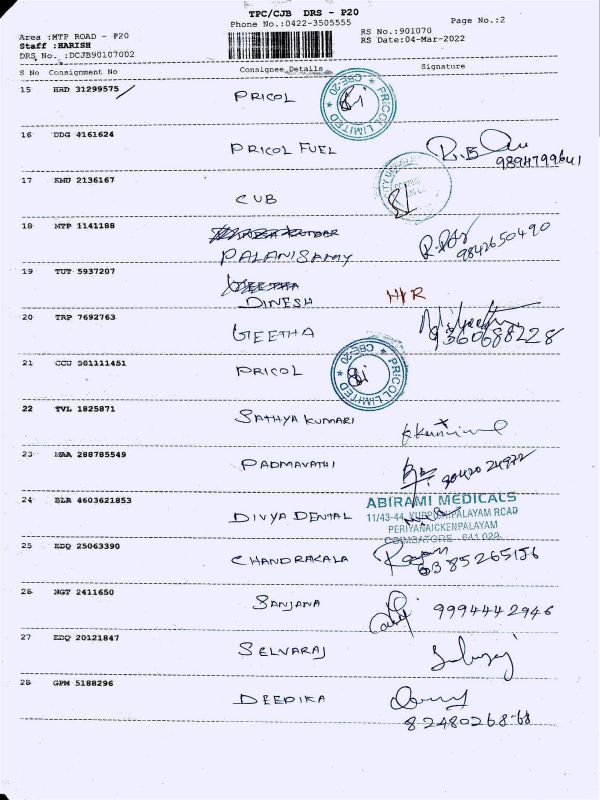 TPC/CJB DRS - P20
Phone No.:0422-3505555
Page No.:2
Area :MTP ROAD - P20
RS No.:901070
Staff :HARISH
RS Date:04-Mar-2022
DRS No. :DCJB90107002
S No Consignment No Consignee Details Signature
15 HRD 31299575 PRICOL
PRICOL LIMITED ★ CBE-20 ★
16 DDG 4161624 PRICOL FUEL
9894799641
17 KMU 2136167 CUB
18 MTP 1141188
PALANISAMY 9842650490
19 TUT 5937207
DINESH H/R
20 TRP 7692763 GEETHA
9360688228
21 CCU 581111451 PRICOL
PRICOL LIMITED ★ CBE-20 ★
22 TVL 1825871 SATHYA KUMARI
23 MAA 288785549 PADMAVATHI
24 BLR 4603621853 DIVYA DENTAL
ABIRAMI MEDICALS
11/43-44, PALAYAM ROAD
PERIYANAICKENPALAYAM
COIMBATORE - 641 029.
25 EDQ 25063390 CHANDRAKALA
6385265156
26 NGT 2411650 SANJANA 9994442946
27 EDQ 20121847 SELVARAJ
28 GPM 5188296 DEEPIKA
8248026868